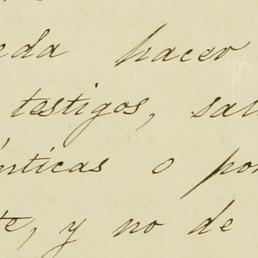 eda hacer
testigos, sal
nticas o por
te, y no de